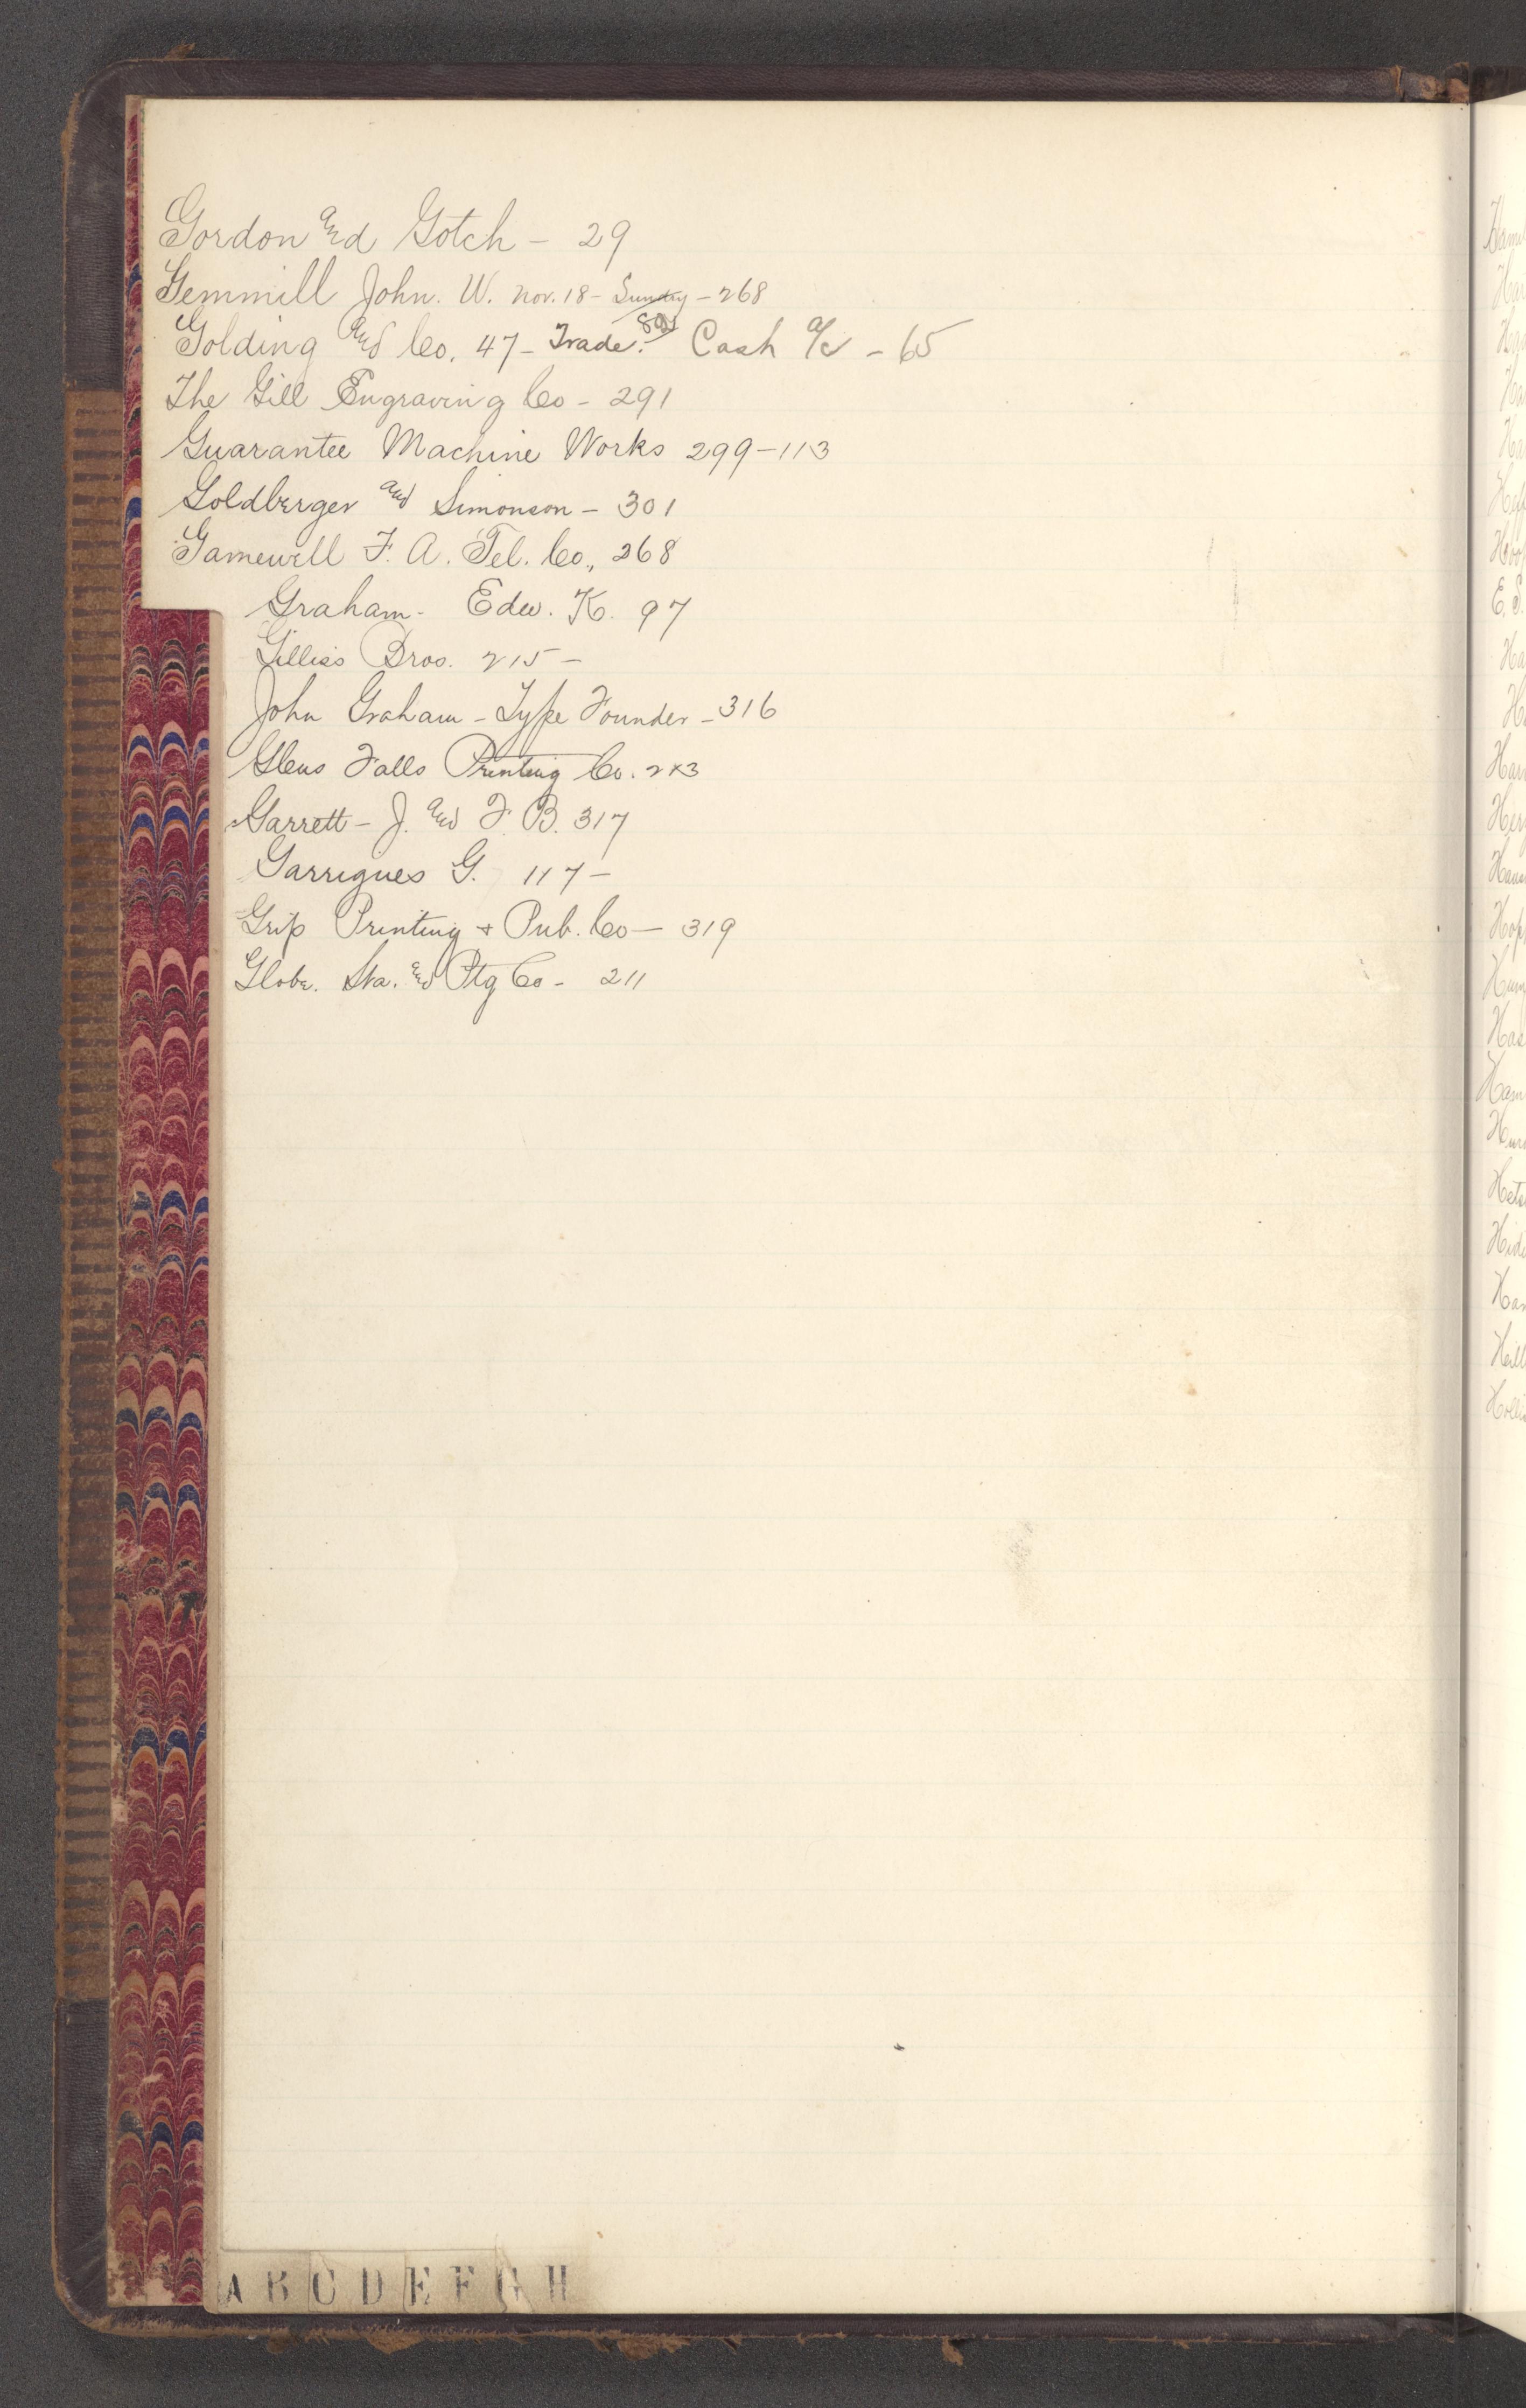 Gordon and Gotch - 29
Gemmill John. W. Nov. 18 - Sundry - 268
Golding and Co. 47 - Trade. 89 Cash a/c - 65
The Gill Engraving Co - 291
Guarantee Machine Works 299-113
Goldberger and Simonson - 301
Gamewell F. A. Tel. Co., 268
Graham - Edw. K. 97
Gilliss Bros. 215 -
John Graham - Type Founder - 316
Glens Falls Printing Co. 2x3
Garrett - J. and F. B. 317
Garrigues G. 117 -
Grip Printing + Pub. Co - 319
Globe. Sta. and Ptg Co - 211
A B C D E F G H